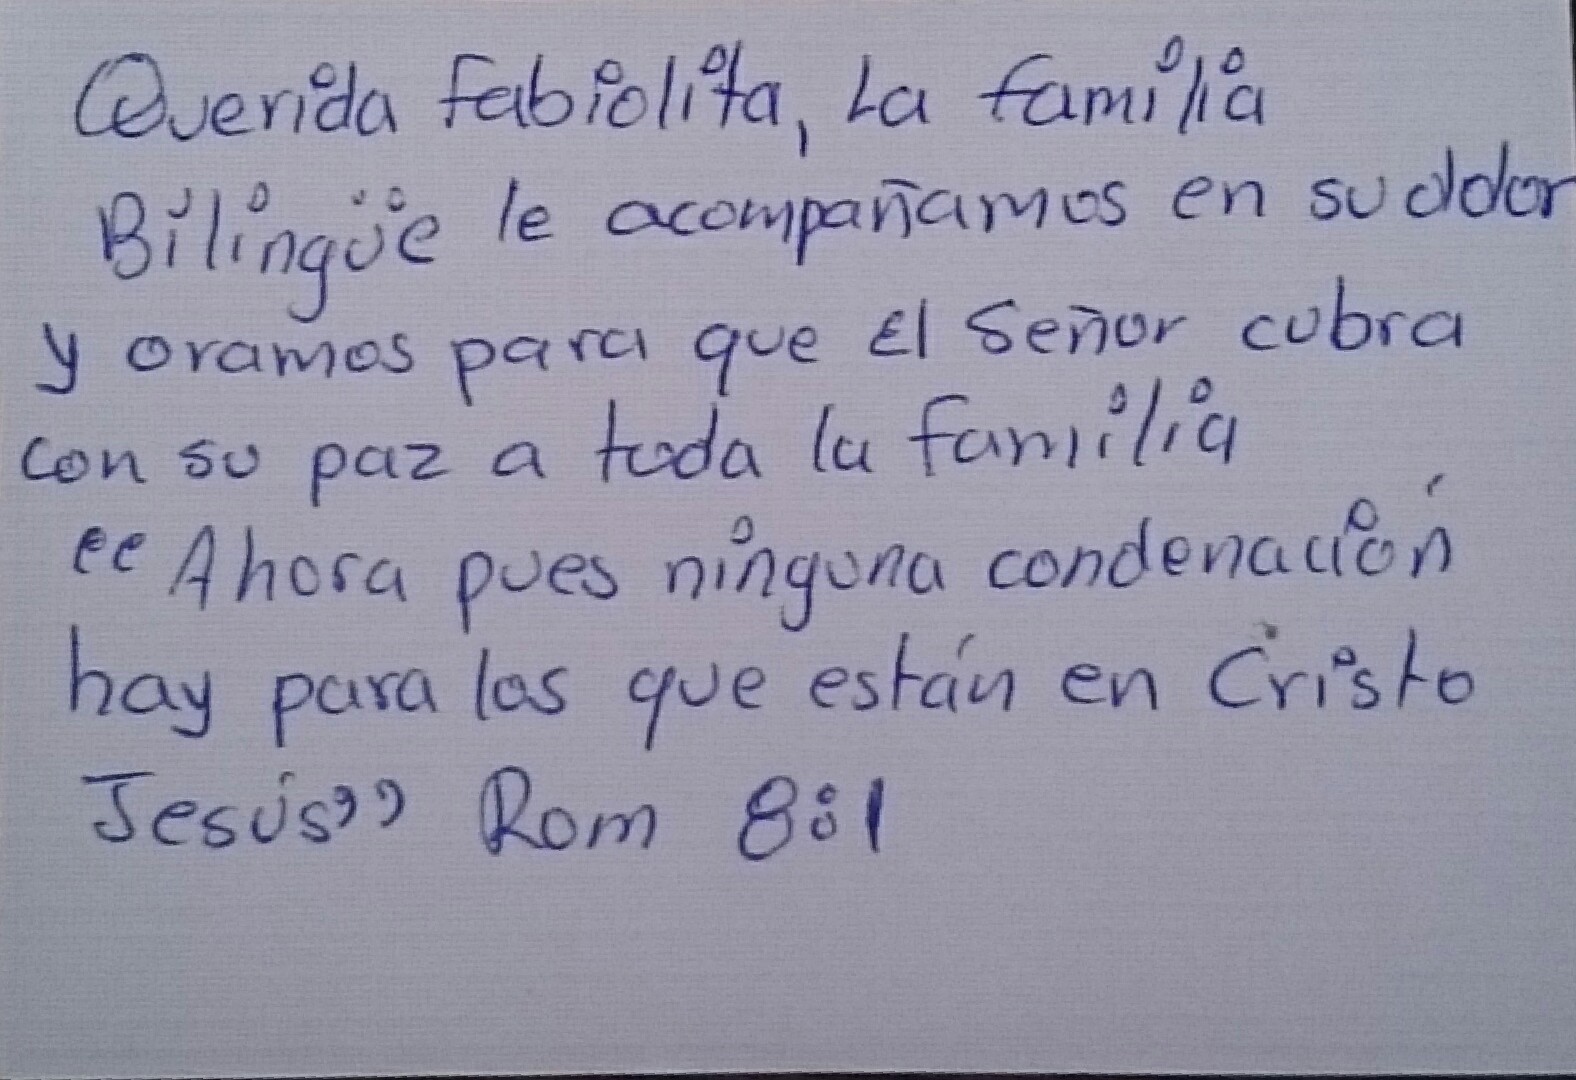 Querida Fabiolita, La familia
Bilingüe le acompañamos en su dolor
y oramos para que El Señor cubra
con su paz a toda la familia
“Ahora pues ninguna condenación
hay para los que están en Cristo
Jesús” Rom 8:1